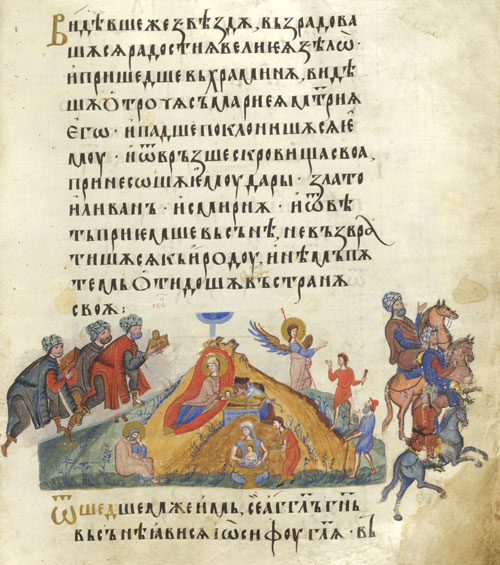 Видѣвшежеꙁвѣꙁдѫ, вьꙁрадова
шѧсѧрадостиѫвелиеѫꙃѣлѡ ·
ипришедшевьхраминѫ, видѣ
шѧотрочѧсъмариеѫмт҃риѫ
его · ипадшепоклонишѧсѧе
моу · иѿврьꙁшескровищасвоа,
принесошѧемоудары · ꙁлато
иливанъ · исмирнѫ · иѿвѣ
тьприемшевьснѣ, невъꙁвра
тишѧсѧкьиродоу, инѣмьпѫ
темьотидошѧвъстранѫ
своѫ :
Ѿшедшемжеимь, сеаг҃глъг҃нь
вьснѣꙗвисѧіѡсифоугл҃ѧ · вь